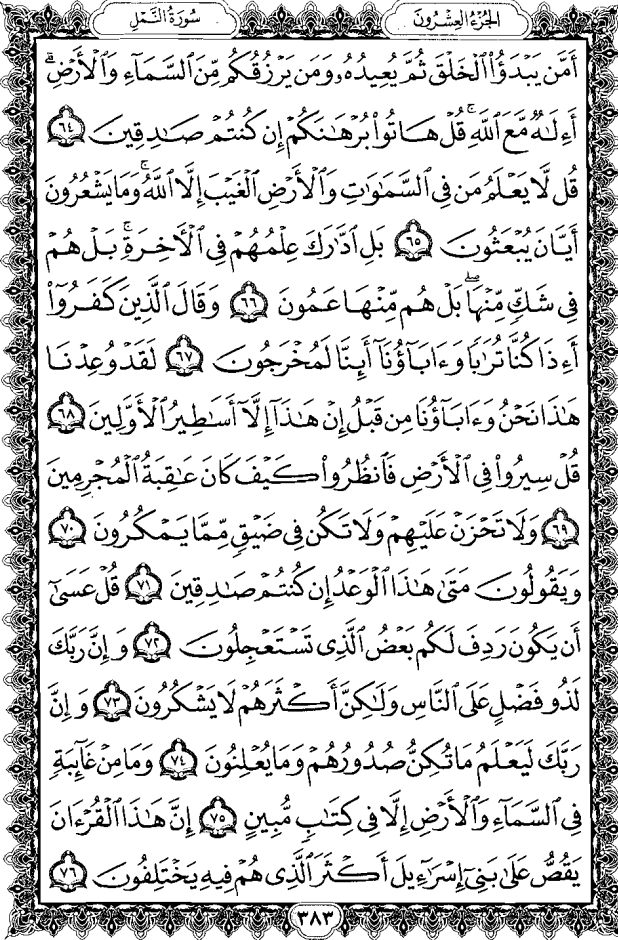 الجُزْءُ العِشْرُونَ
سُورَةُ النَّمْلِ
أَمَّن يَبْدَؤُا۟ ٱلْخَلْقَ ثُمَّ يُعِيدُهُۥ وَمَن يَرْزُقُكُم مِّنَ ٱلسَّمَآءِ وَٱلْأَرْضِۗ
أَءِلَـٰهٌ مَّعَ ٱللَّهِۚ قُلْ هَاتُوا۟ بُرْهَـٰنَكُمْ إِن كُنتُمْ صَـٰدِقِينَ ٦٤
قُل لَّا يَعْلَمُ مَن فِى ٱلسَّمَـٰوَٰتِ وَٱلْأَرْضِ ٱلْغَيْبَ إِلَّا ٱللَّهُۚ وَمَا يَشْعُرُونَ
أَيَّانَ يُبْعَثُونَ ٦٥ بَلِ ٱدَّٰرَكَ عِلْمُهُمْ فِى ٱلْـَٔاخِرَةِۚ بَلْ هُمْ
فِى شَكٍّ مِّنْهَاۖ بَلْ هُم مِّنْهَا عَمُونَ ٦٦ وَقَالَ ٱلَّذِينَ كَفَرُوٓا۟
أَءِذَا كُنَّا تُرَٰبًا وَءَابَآؤُنَآ أَئِنَّا لَمُخْرَجُونَ ٦٧ لَقَدْ وُعِدْنَا
هَـٰذَا نَحْنُ وَءَابَآؤُنَا مِن قَبْلُ إِنْ هَـٰذَآ إِلَّآ أَسَـٰطِيرُ ٱلْأَوَّلِينَ ٦٨
قُلْ سِيرُوا۟ فِى ٱلْأَرْضِ فَٱنظُرُوا۟ كَيْفَ كَانَ عَـٰقِبَةُ ٱلْمُجْرِمِينَ
٦٩ وَلَا تَحْزَنْ عَلَيْهِمْ وَلَا تَكُن فِى ضَيْقٍ مِّمَّا يَمْكُرُونَ ٧٠
وَيَقُولُونَ مَتَىٰ هَـٰذَا ٱلْوَعْدُ إِن كُنتُمْ صَـٰدِقِينَ ٧١ قُلْ عَسَىٰٓ
أَن يَكُونَ رَدِفَ لَكُم بَعْضُ ٱلَّذِى تَسْتَعْجِلُونَ ٧٢ وَإِنَّ رَبَّكَ
لَذُو فَضْلٍ عَلَى ٱلنَّاسِ وَلَـٰكِنَّ أَكْثَرَهُمْ لَا يَشْكُرُونَ ٧٣ وَإِنَّ
رَبَّكَ لَيَعْلَمُ مَا تُكِنُّ صُدُورُهُمْ وَمَا يُعْلِنُونَ ٧٤ وَمَا مِنْ غَآئِبَةٍ
فِى ٱلسَّمَآءِ وَٱلْأَرْضِ إِلَّا فِى كِتَـٰبٍ مُّبِينٍ ٧٥ إِنَّ هَـٰذَا ٱلْقُرْءَانَ
يَقُصُّ عَلَىٰ بَنِىٓ إِسْرَٰٓءِيلَ أَكْثَرَ ٱلَّذِى هُمْ فِيهِ يَخْتَلِفُونَ ٧٦
٣٨٣